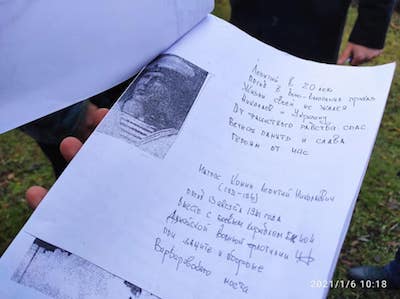 Леонтий в 20 лет
погиб в
жизни своей не жалея
Николаев и Украину
От фашистского рабства спас
Вечная память и слава
Героям от нас
Матрос Конка Леонтий Николаевич
погиб 13 августа 1941 года
вместе с боевым кораблем
Дунайской военной флотилии
при защите и обороне
Варваровского моста
2021/1/6 10:18